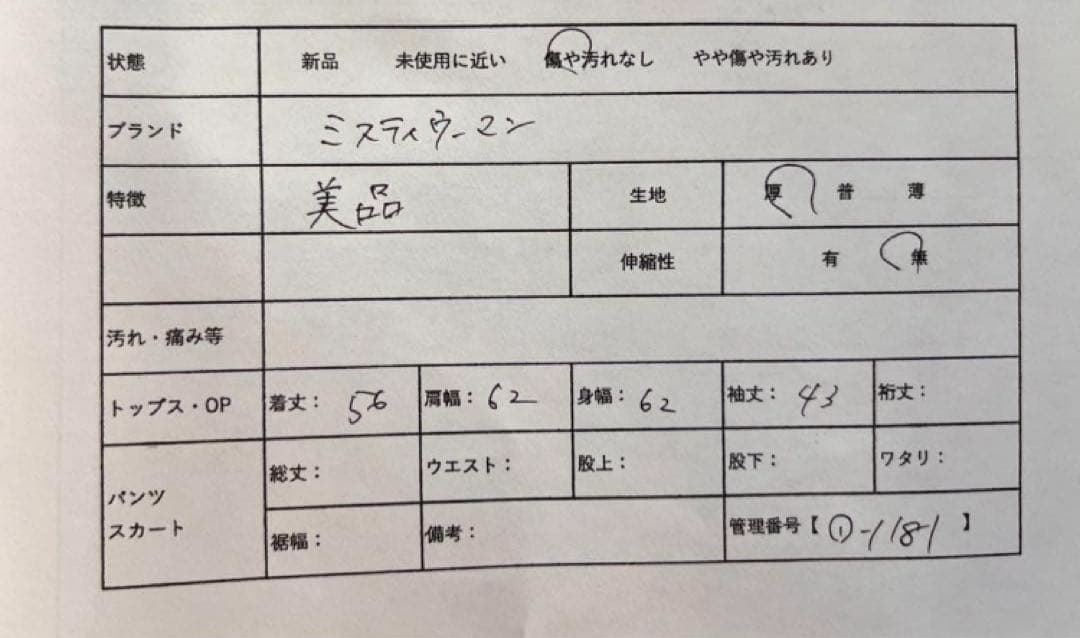 状態 新品 未使用に近い 傷や汚れなし やや傷や汚れあり
ブランド ミスティウーマン
特徴 美品 生地 厚 普 薄
伸縮性 有 無
汚れ・痛み等
トップス・OP 着丈： 56 肩幅： 62 身幅： 62 袖丈： 43 裄丈：
パンツ スカート 総丈： ウエスト： 股上： 股下： ワタリ：
裾幅： 備考： 管理番号【 ①-1181 】